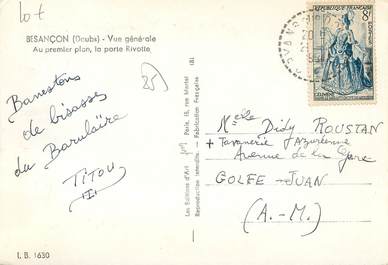 lot
BESANÇON (Doubs) - Vue générale
Au premier plan, la porte Rivotte
25)
Banestons
de bisasses
du Barulaire
TITOU
I. B. 1630
181
Les Editions d'Art
Paris, 18, rue Martel
Reproduction interdite. - Fabrication Française
REPUBLIQUE FRANÇAISE
8F
POSTES
Melle Didy ROUSTAN
+ Tavererie d'Azurienne
Avenue de la Gare
GOLFE-JUAN
(A.-M.)